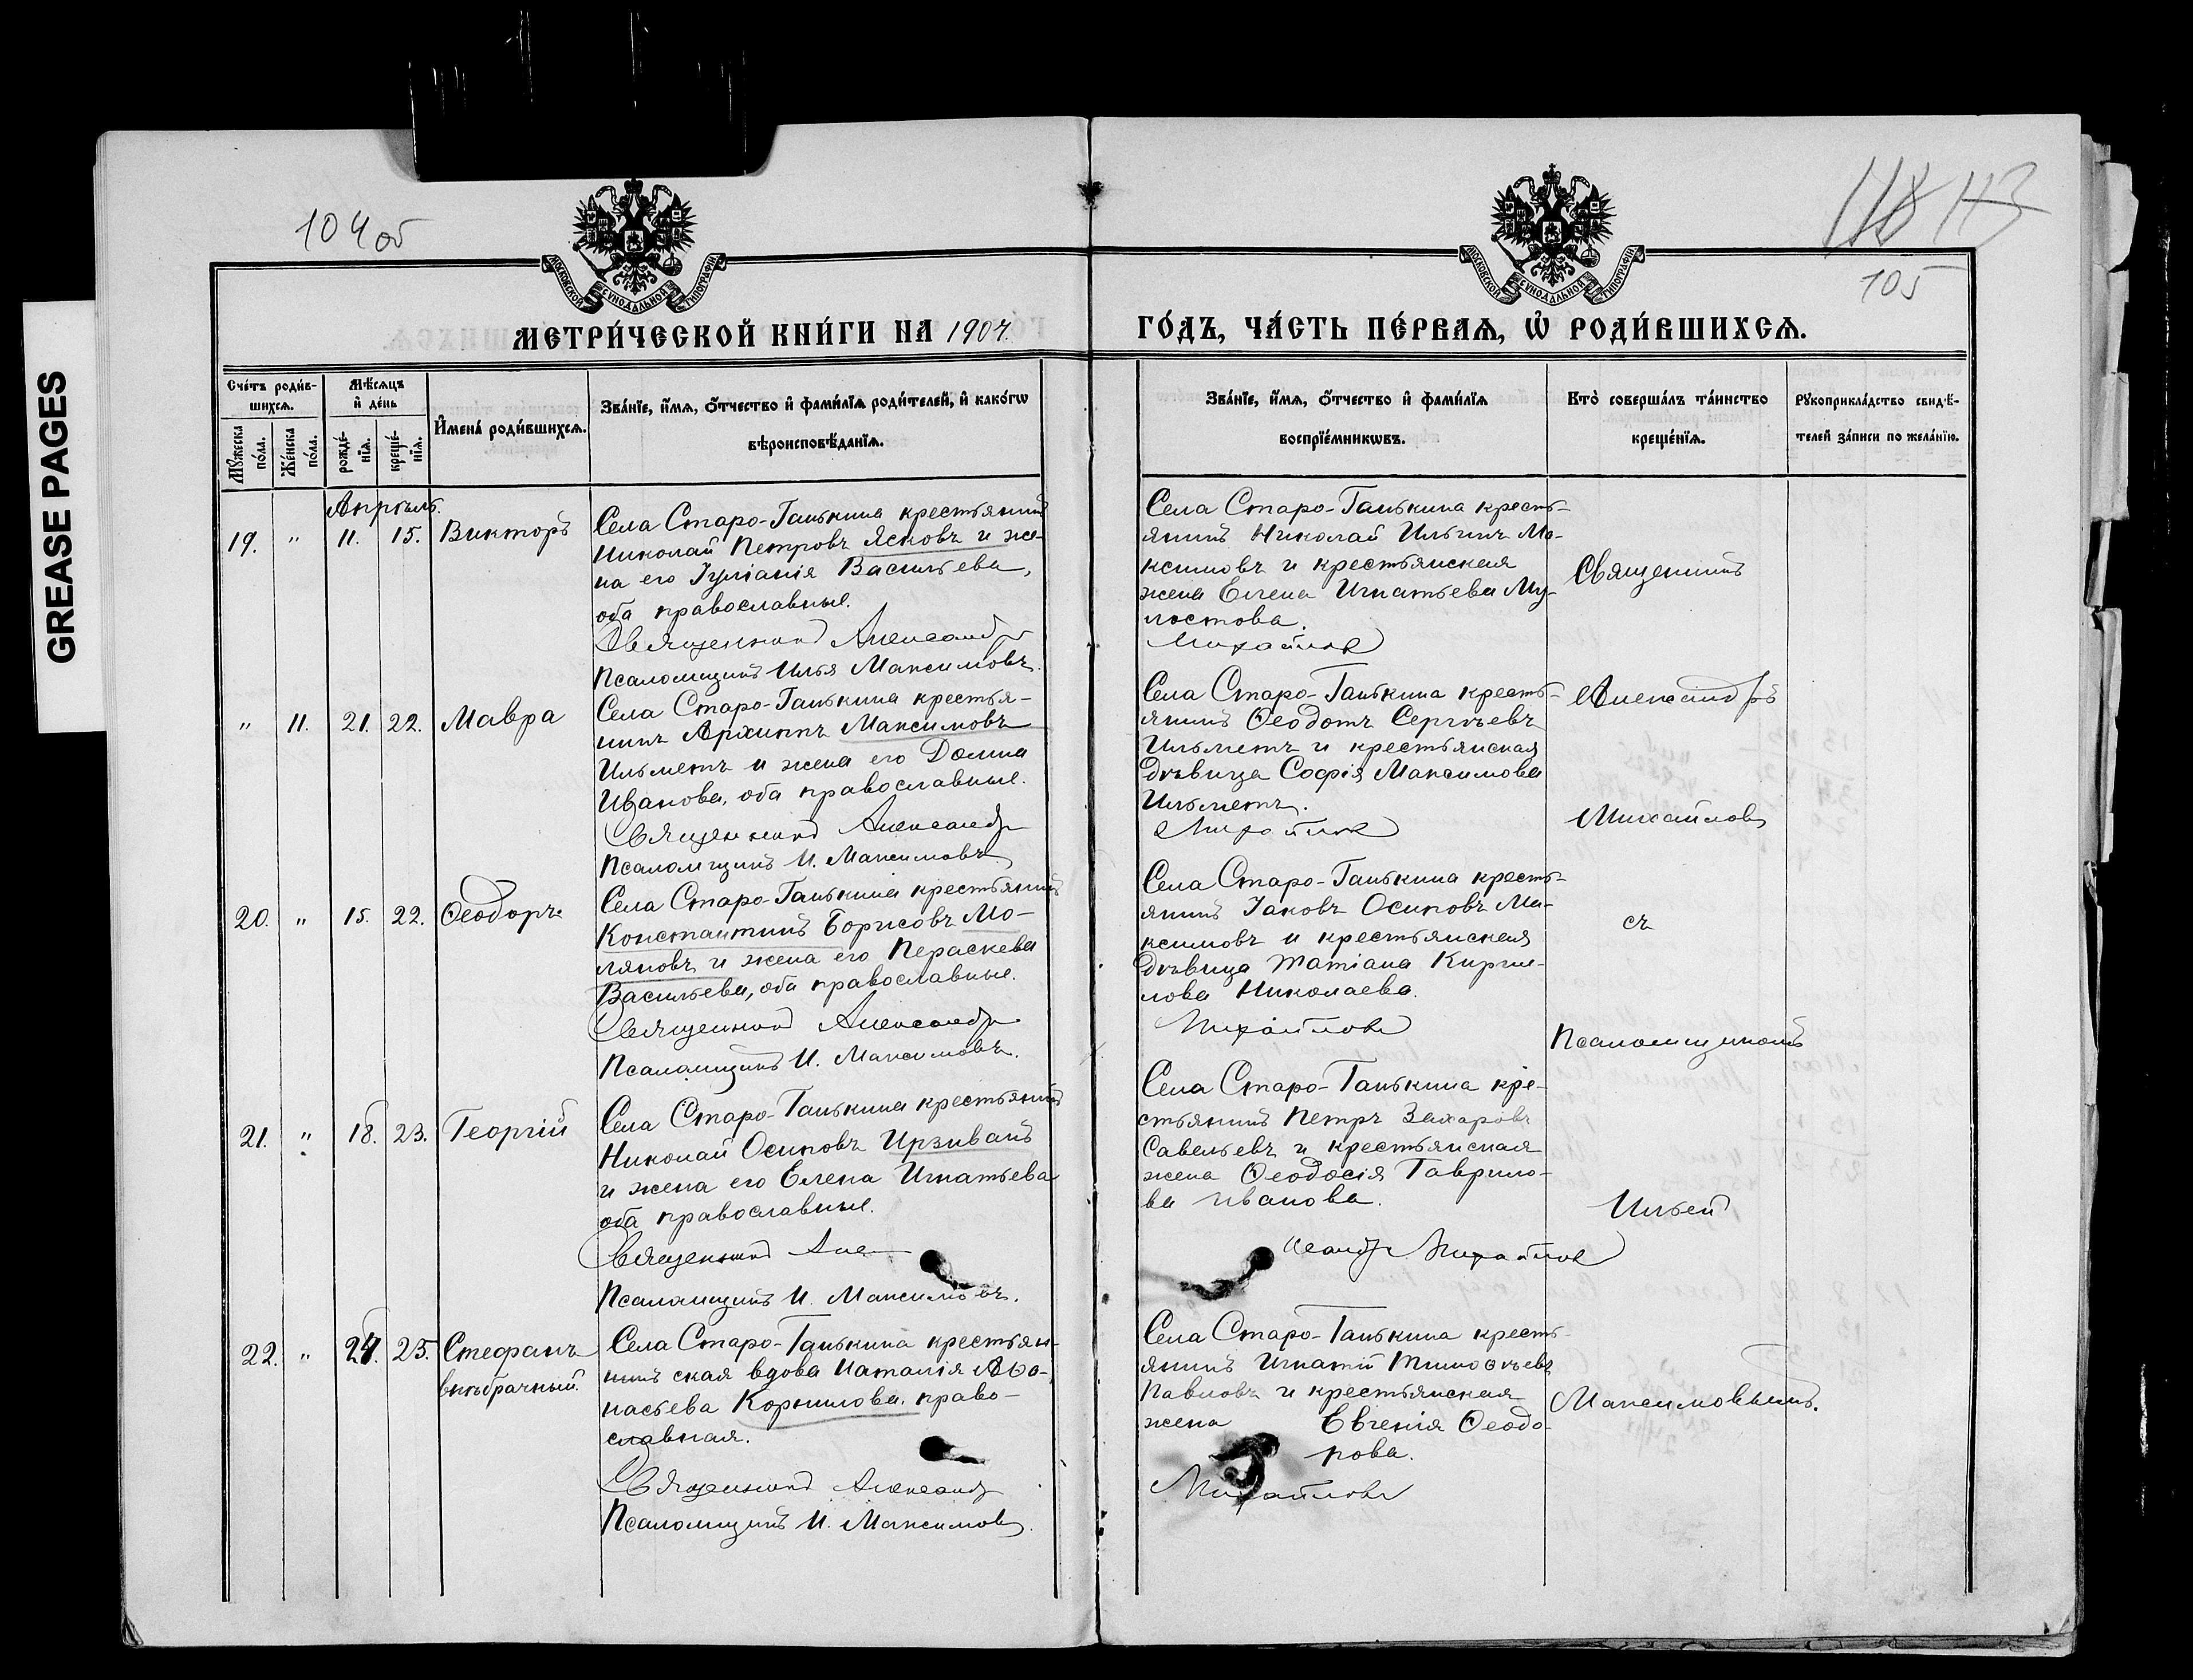 GREASE PAGES
104 об
113
105
МОСКОВСКОЙ СѴНОДАЛЬНОЙ ТИПОГРАФІИ
МОСКОВСКОЙ СѴНОДАЛЬНОЙ ТИПОГРАФІИ
МЕТРИ́ЧЕСКОЙ КНИ́ГИ НА 1904.
ГО́ДЪ, ЧА́СТЬ ПЕ́РВАѦ, Ѡ҆ РОДИ́ВШИХСѦ.
Сче́тъ роди́в-
шихсѧ.
Мѣ́сѧцъ
и҆ де́нь
Мꙋ́жеска
по́ла.
Же́нска
по́ла.
рожде́-
нїѧ.
креще́-
нїѧ.
И҆мена̀ роди́вшихсѧ.
Зва́нїе, и҆́мѧ, ѻ҆́тчество и҆ фами́лїѧ роди́телей, и҆ како́гѡ
вѣроисповѣ́данїѧ.
Зва́нїе, и҆́мѧ, ѻ҆́тчество и҆ фами́лїѧ
воспрїе́мникѡвъ.
Кто̀ соверша́лъ та́инство
креще́нїѧ.
Рꙋкоприкла́дство свидѣ́-
телей за́писи по жела́нїю.
Апрѣль.
19. " 11. 15. Викторъ
Села Старо-Ганькина крестьянинъ
Николай Петровъ Ясковъ и же-
на его Іуліанія Васильева,
оба православные.
Священникъ Александръ
Псаломщикъ Илья Максимовъ.
Села Старо-Ганькина кресть-
янинъ Николай Ильинъ Ма-
ксимовъ и крестьянская
жена Елена Игнатьева Му-
лостова.
Михайловъ
Священникъ
" 11. 21. 22. Мавра
Села Старо-Ганькина крестья-
нинъ Архиппъ Максимовъ
Ильметъ и жена его Домна
Иванова, оба православные.
Священникъ Александръ
Псаломщикъ И. Максимовъ
Села Старо-Ганькина кресть-
янинъ Ѳеодотъ Сергѣевъ
Ильметъ и крестьянская
дѣвица Софія Максимова
Ильметъ.
Михайловъ
Александръ
Михайловъ
20. " 15. 22. Ѳеодоръ
Села Старо-Ганькина крестьянинъ
Константинъ Борисовъ Мо-
ляновъ и жена его Параскева
Васильева, оба православные.
Священникъ Александръ
Псаломщикъ И. Максимовъ.
Села Старо-Ганькина кресть-
янинъ Іаковъ Осиповъ Ма-
ксимовъ и крестьянская
дѣвица Татіана Кирил-
лова Николаева.
Михайловъ
съ
Псаломщикомъ
21. " 18. 23. Георгій
Села Старо-Ганькина крестьянинъ
Николай Осиповъ Ирзиванъ
и жена его Елена Игнатьева
оба православные.
Священникъ Але
Псаломщикъ И. Максимовъ.
Села Старо-Ганькина кре-
стьянинъ Петръ Захаровъ
Савельевъ и крестьянская
жена Ѳеодосія Гаврило-
ва Иванова.
ксандръ Михайловъ
Ильей
22. " 24. 25. Стефанъ
внѣбрачный.
Села Старо-Ганькина крестьян-
ская вдова Наталія Аѳа-
насьева Корнилова, право-
славная.
Священникъ Александръ
Псаломщикъ И. Максимовъ.
Села Старо-Ганькина кресть-
янинъ Игнатій Тимоѳѣевъ
Павловъ и крестьянская
жена Евгенія Ѳеодо-
рова.
Михайловъ
Максимовымъ.